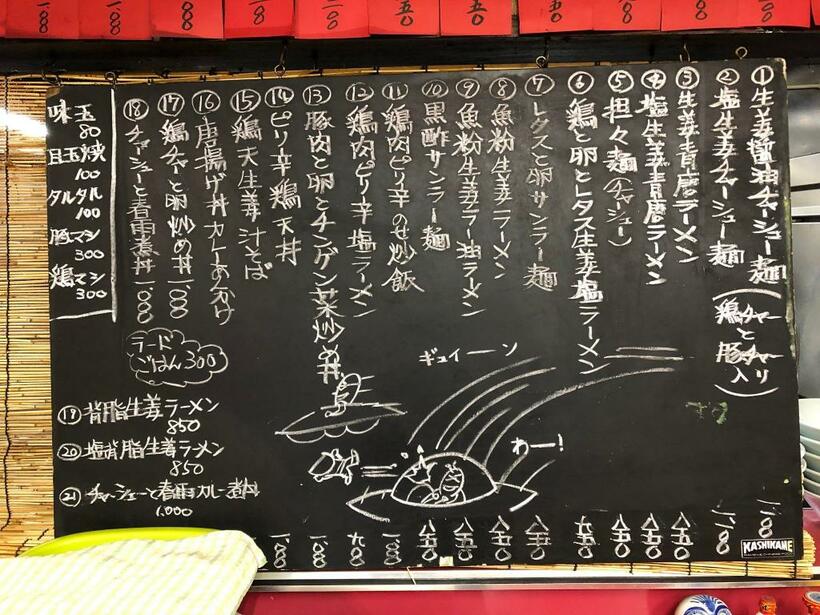 ①生姜醤油チャーシュー麺 一一〇〇
②塩生姜チャーシュー麺 一一〇〇
(鶏チャーと豚チャー入り)
③生姜青唐ラーメン 八五〇
④塩生姜青唐ラーメン 八五〇
⑤担々麺(チャーシュー) 八五〇
⑥鶏と卵とレタス生姜塩ラーメン 九五〇
⑦レタスと卵サンラー麺 八五〇
⑧魚粉生姜ラーメン 八五〇
⑨魚粉生姜ラー油ラーメン 八五〇
⑩黒酢サンラー麺 八五〇
⑪鶏肉ピリ辛のせ炒飯 一〇〇〇
⑫鶏肉ピリ辛塩ラーメン 九〇〇
⑬豚肉と卵とチンゲン菜炒め丼 一〇〇〇
⑭ピリ辛鶏天丼 一〇〇〇
⑮鶏天生姜汁そば
⑯唐揚げ丼カレーあんかけ
⑰鶏チャーと卵炒め丼 一〇〇〇
⑱チャーシューと春雨煮丼 一〇〇〇
味玉
80
目玉焼
100
タルタル
100
豚マシ
300
鶏マシ
300
ラード
ごはん300
⑲背脂生姜ラーメン
850
⑳塩背脂生姜ラーメン
850
㉑チャーシューと春雨カレー煮丼
1.000
ギュイーン
わー!
KASHIKANE